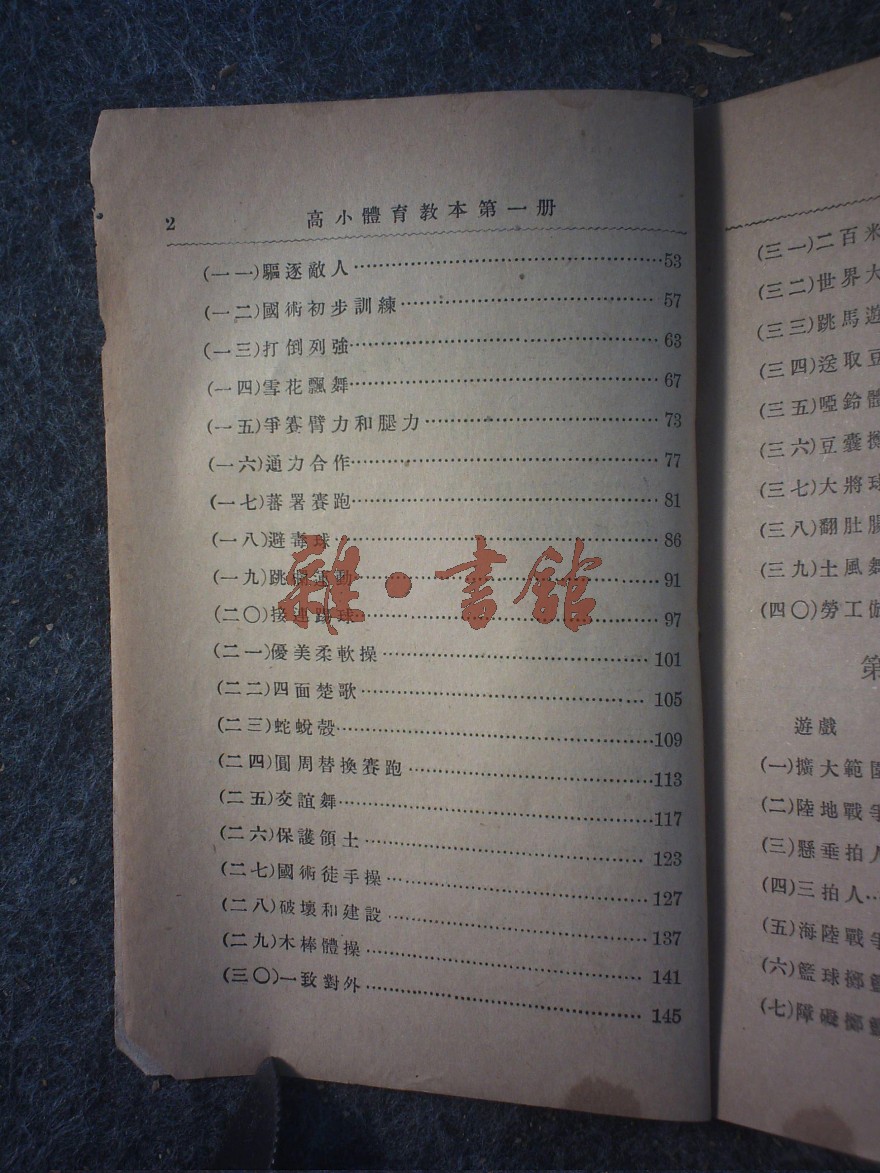 2 高小體育教本第一册
(一一)驅逐敵人 53
(一二)國術初步訓練 57
(一三)打倒列強 63
(一四)雪花飄舞 67
(一五)爭賽臂力和腿力 73
(一六)通力合作 77
(一七)蕃署賽跑 81
(一八)避毒球 86
(一九)跳欄運動 91
(二〇)接連踢球 97
(二一)優美柔軟操 101
(二二)四面楚歌 105
(二三)蛇蛻殼 109
(二四)圓周替換賽跑 113
(二五)交誼舞 117
(二六)保護領土 123
(二七)國術徒手操 127
(二八)破壞和建設 137
(二九)木棒體操 141
(三〇)一致對外 145
雜·書館
(三一)二百米
(三二)世界大
(三三)跳馬遊
(三四)送取豆
(三五)啞鈴體
(三六)豆囊擲
(三七)大將球
(三八)翻肚腸
(三九)土風舞
(四〇)勞工
第
遊戲
(一)擴大範圍
(二)陸地戰爭
(三)懸垂拍人
(四)三拍人
(五)海陸戰爭
(六)籃球擲
(七)障礙擲